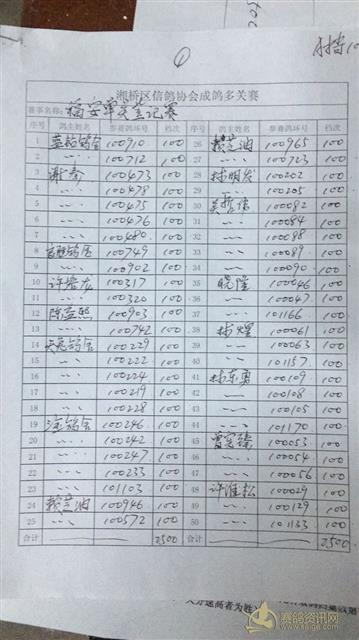 湘桥区信鸽协会成鸽多关赛
赛事名称: 福安单关登记赛
序号 鸽主姓名 参赛鸽环号 档次 序号 鸽主姓名 参赛鸽环号 档次
1 100910 100 26 赖芝油 100965 100
2 〃 100712 100 27 〃 100723 100
3 谢奇 100473 100 28 林明发 100202 100
4 〃 100478 100 29 〃 100205 100
5 〃 100475 100 30 100082 100
6 〃 100476 100 31 〃 100084 100
7 〃 100480 100 32 〃 100088 100
8 100749 100 33 〃 100089 100
9 〃 100902 100 34 〃 100090 100
10 100317 100 35 晓隆 100046 100
11 〃 100320 100 36 〃 100047 100
12 100903 100 37 〃 101166 100
13 〃 100742 100 38 林煜 100061 100
14 100229 100 39 〃 100063 100
15 〃 100222 100 40 〃 101157 100
16 〃 100224 100 41 林东勇 100109 100
17 〃 100219 100 42 〃 100108 100
18 〃 100228 100 43 〃 100105 100
19 100246 100 44 〃 101170 100
20 〃 100242 100 45 100053 100
21 〃 100247 100 46 〃 100054 100
22 〃 100233 100 47 〃 100056 100
23 〃 101103 100 48 许淮松 100029 100
24 赖芝油 100946 100 49 〃 100129 100
25 〃 100572 100 50 〃 101133 100
合计 2500 合计 2500
赛鸽资讯网
www.saige.com